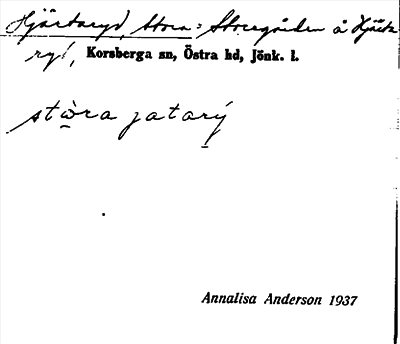 Hjärtaryd, Stora: Storegården å Hjärta-
ryd, Korsberga sn, Östra hd, Jönk. l.
stò̱ra jatarý̱
Annalisa Anderson 1937